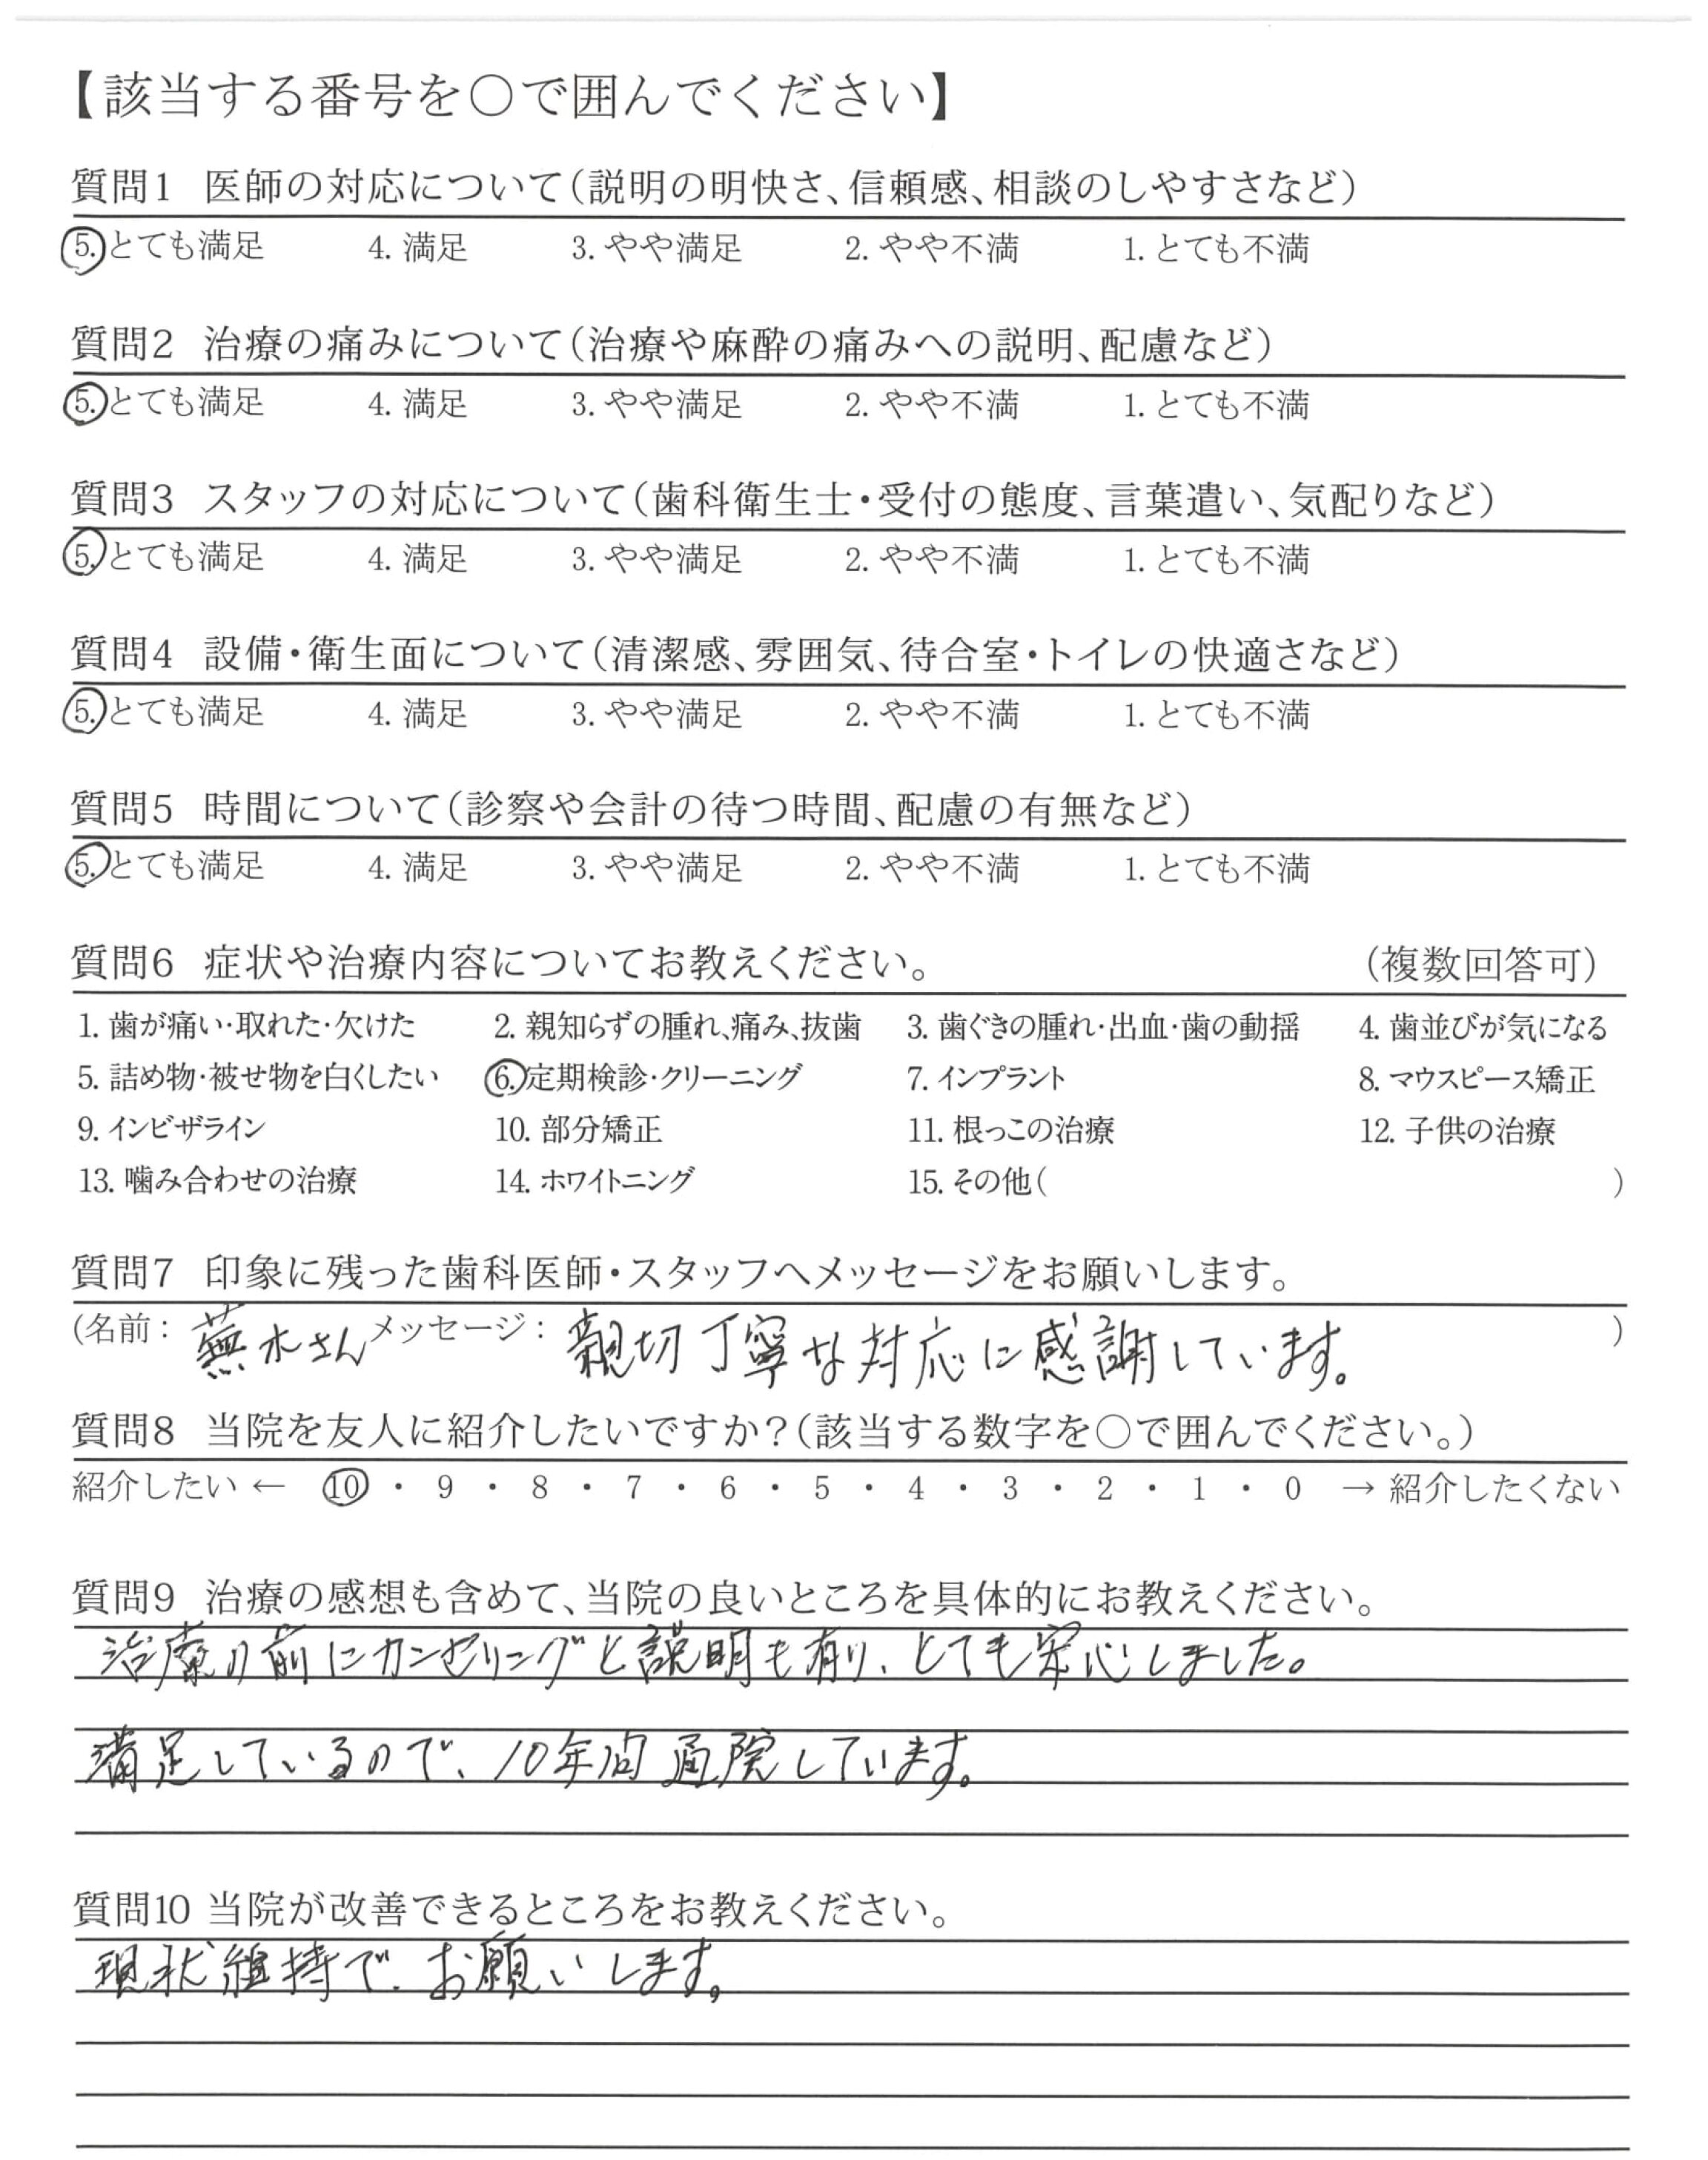 【該当する番号を○で囲んでください】
質問1 医師の対応について(説明の明快さ、信頼感、相談のしやすさなど)
5. とても満足 4. 満足 3. やや満足 2. やや不満 1. とても不満
質問2 治療の痛みについて(治療や麻酔の痛みへの説明、配慮など)
5. とても満足 4. 満足 3. やや満足 2. やや不満 1. とても不満
質問3 スタッフの対応について(歯科衛生士・受付の態度、言葉遣い、気配りなど)
5. とても満足 4. 満足 3. やや満足 2. やや不満 1. とても不満
質問4 設備・衛生面について(清潔感、雰囲気、待合室・トイレの快適さなど)
5. とても満足 4. 満足 3. やや満足 2. やや不満 1. とても不満
質問5 時間について(診察や会計の待つ時間、配慮の有無など)
5. とても満足 4. 満足 3. やや満足 2. やや不満 1. とても不満
質問6 症状や治療内容についてお教えください。 (複数回答可)
1. 歯が痛い・取れた・欠けた 2. 親知らずの腫れ、痛み、抜歯 3. 歯ぐきの腫れ・出血・歯の動揺 4. 歯並びが気になる
5. 詰め物・被せ物を白くしたい 6. 定期検診・クリーニング 7. インプラント 8. マウスピース矯正
9. インビザライン 10. 部分矯正 11. 根っこの治療 12. 子供の治療
13. 噛み合わせの治療 14. ホワイトニング 15. その他( )
質問7 印象に残った歯科医師・スタッフへメッセージをお願いします。
(名前: 蕪木さん メッセージ: 親切丁寧な対応に感謝しています。 )
質問8 当院を友人に紹介したいですか?(該当する数字を○で囲んでください。)
紹介したい ← 10 ・ 9 ・ 8 ・ 7 ・ 6 ・ 5 ・ 4 ・ 3 ・ 2 ・ 1 ・ 0 → 紹介したくない
質問9 治療の感想も含めて、当院の良いところを具体的にお教えください。
治療の前にカンセリングと説明も有り、とても安心しました。
満足しているので、10年間通院しています。
質問10 当院が改善できるところをお教えください。
現状維持で、お願いします。